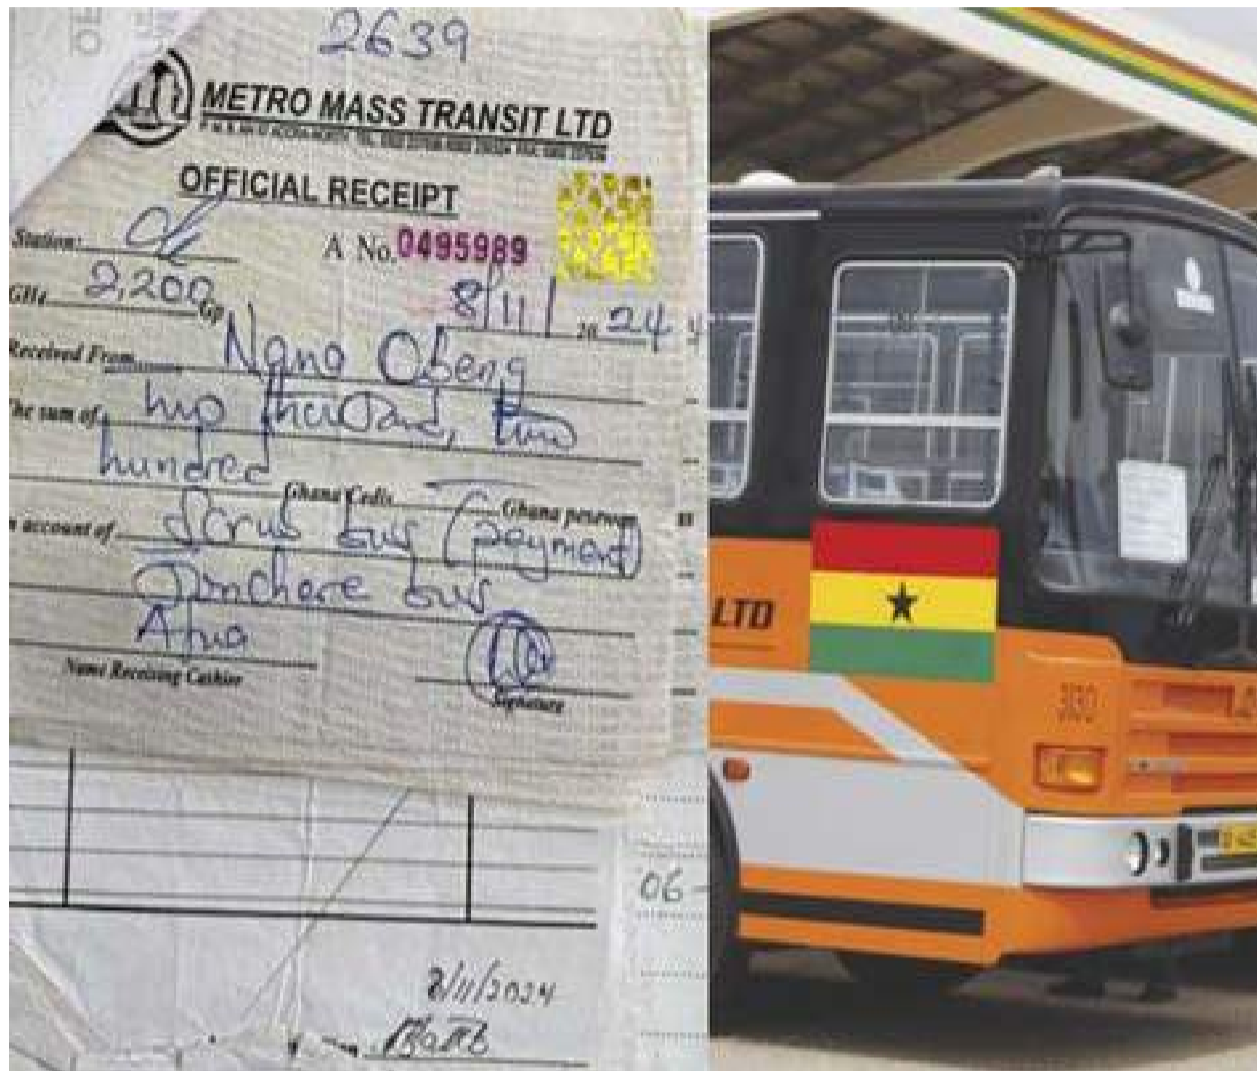 2639
METRO MASS TRANSIT LTD
OFFICIAL RECEIPT
Station:
A No. 0495989
GH¢ 2,200 Gp
8/11/ 20 24
Received From Nana Obeng
The sum of two thousand, two
hundred
Ghana Cedis Ghana pesewas
n account of Scrub bus (payment)
bus
Afua
Name Receiving Cashier
Signature
06
8/11/2024
LTD
3130